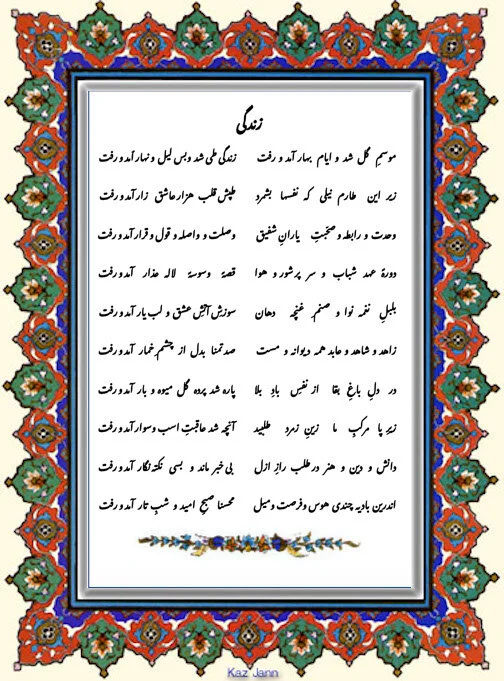 زندگی
موسمِ گل شد و ایام بهار آمد و رفت زندگی طی شد و بس لیل و نهار آمد و رفت
زیر این طارم نیلی که نفسها بشمرد طپش قلب هزار عاشق زار آمد و رفت
وحدت و رابطه و صحبتِ یارانِ شفیق وصلت و واصله و قول و قرار آمد و رفت
دورهٔ عهد شباب و سر پر شور و هوا قصهٔ وسوسهٔ لاله عذار آمد و رفت
بلبل نغمه نوا و صنمِ غنچه دهان سوزشِ آتشِ عشق و لب یار آمد و رفت
زاهد و شاهد و عابد همه دیوانه و مست صد تمنا بدل از چشمِ خمار آمد و رفت
در دلِ باغِ بقا از نفسِ بادِ بلا پاره شد پرده گل میوه و بار آمد و رفت
زیرِ پا مرکبِ ما زینِ زمرد طلبید آنچه شد عاقبت اسب و سوار آمد و رفت
دانش و دین و هنر در طلب رازِ ازل بی خبر ماند و بسی نکته نگار آمد و رفت
اندرین بادیه چندی هوس و فرصت و میل محسنا صبحِ امید و شبِ تار آمد و رفت
Kaz Jann